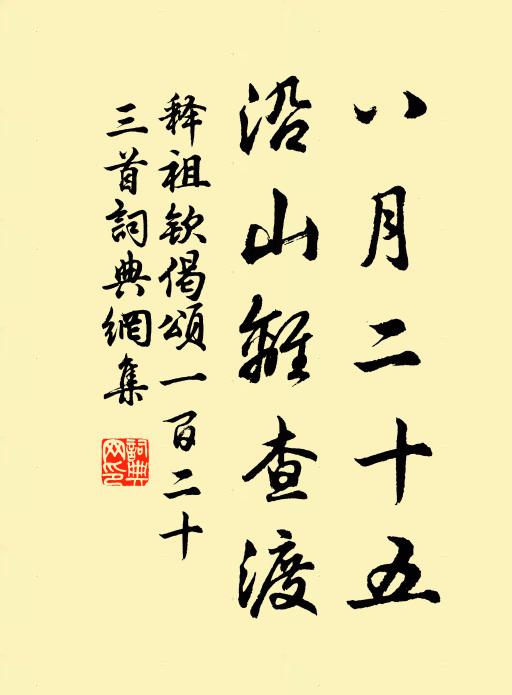 八月二十五
沿山離查渡
释祖欽偈頌一百二十
三首詞典網集
詞典网印